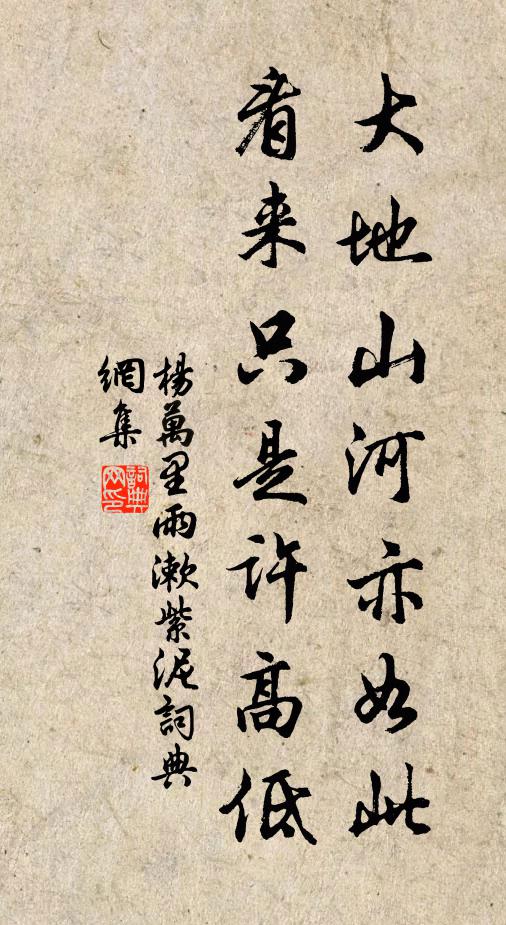 大地山河亦如此
看来只是许高低
楊萬里雨漱紫泥詞典
網集
詞典
网印